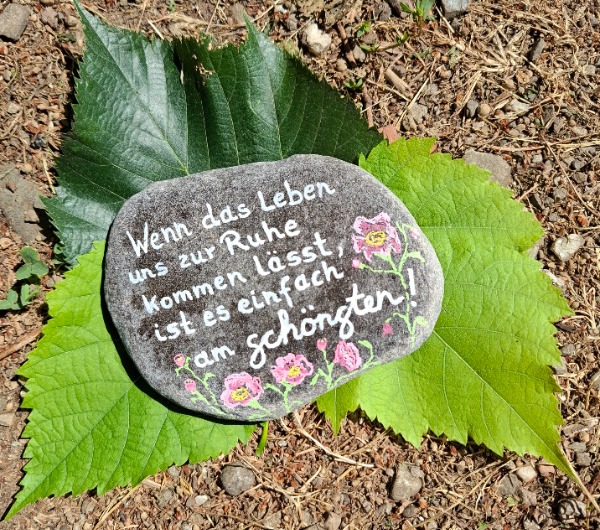 Wenn das Leben
uns zur Ruhe
kommen lässt,
ist es einfach
am schöngten!